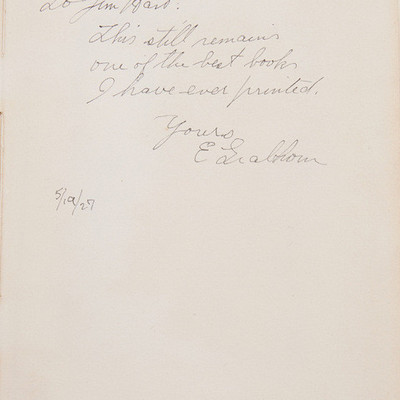 To Jim Hart:
This still remains
one of the best books
I have ever printed.
Yours
E Grabhorn
5/19/27